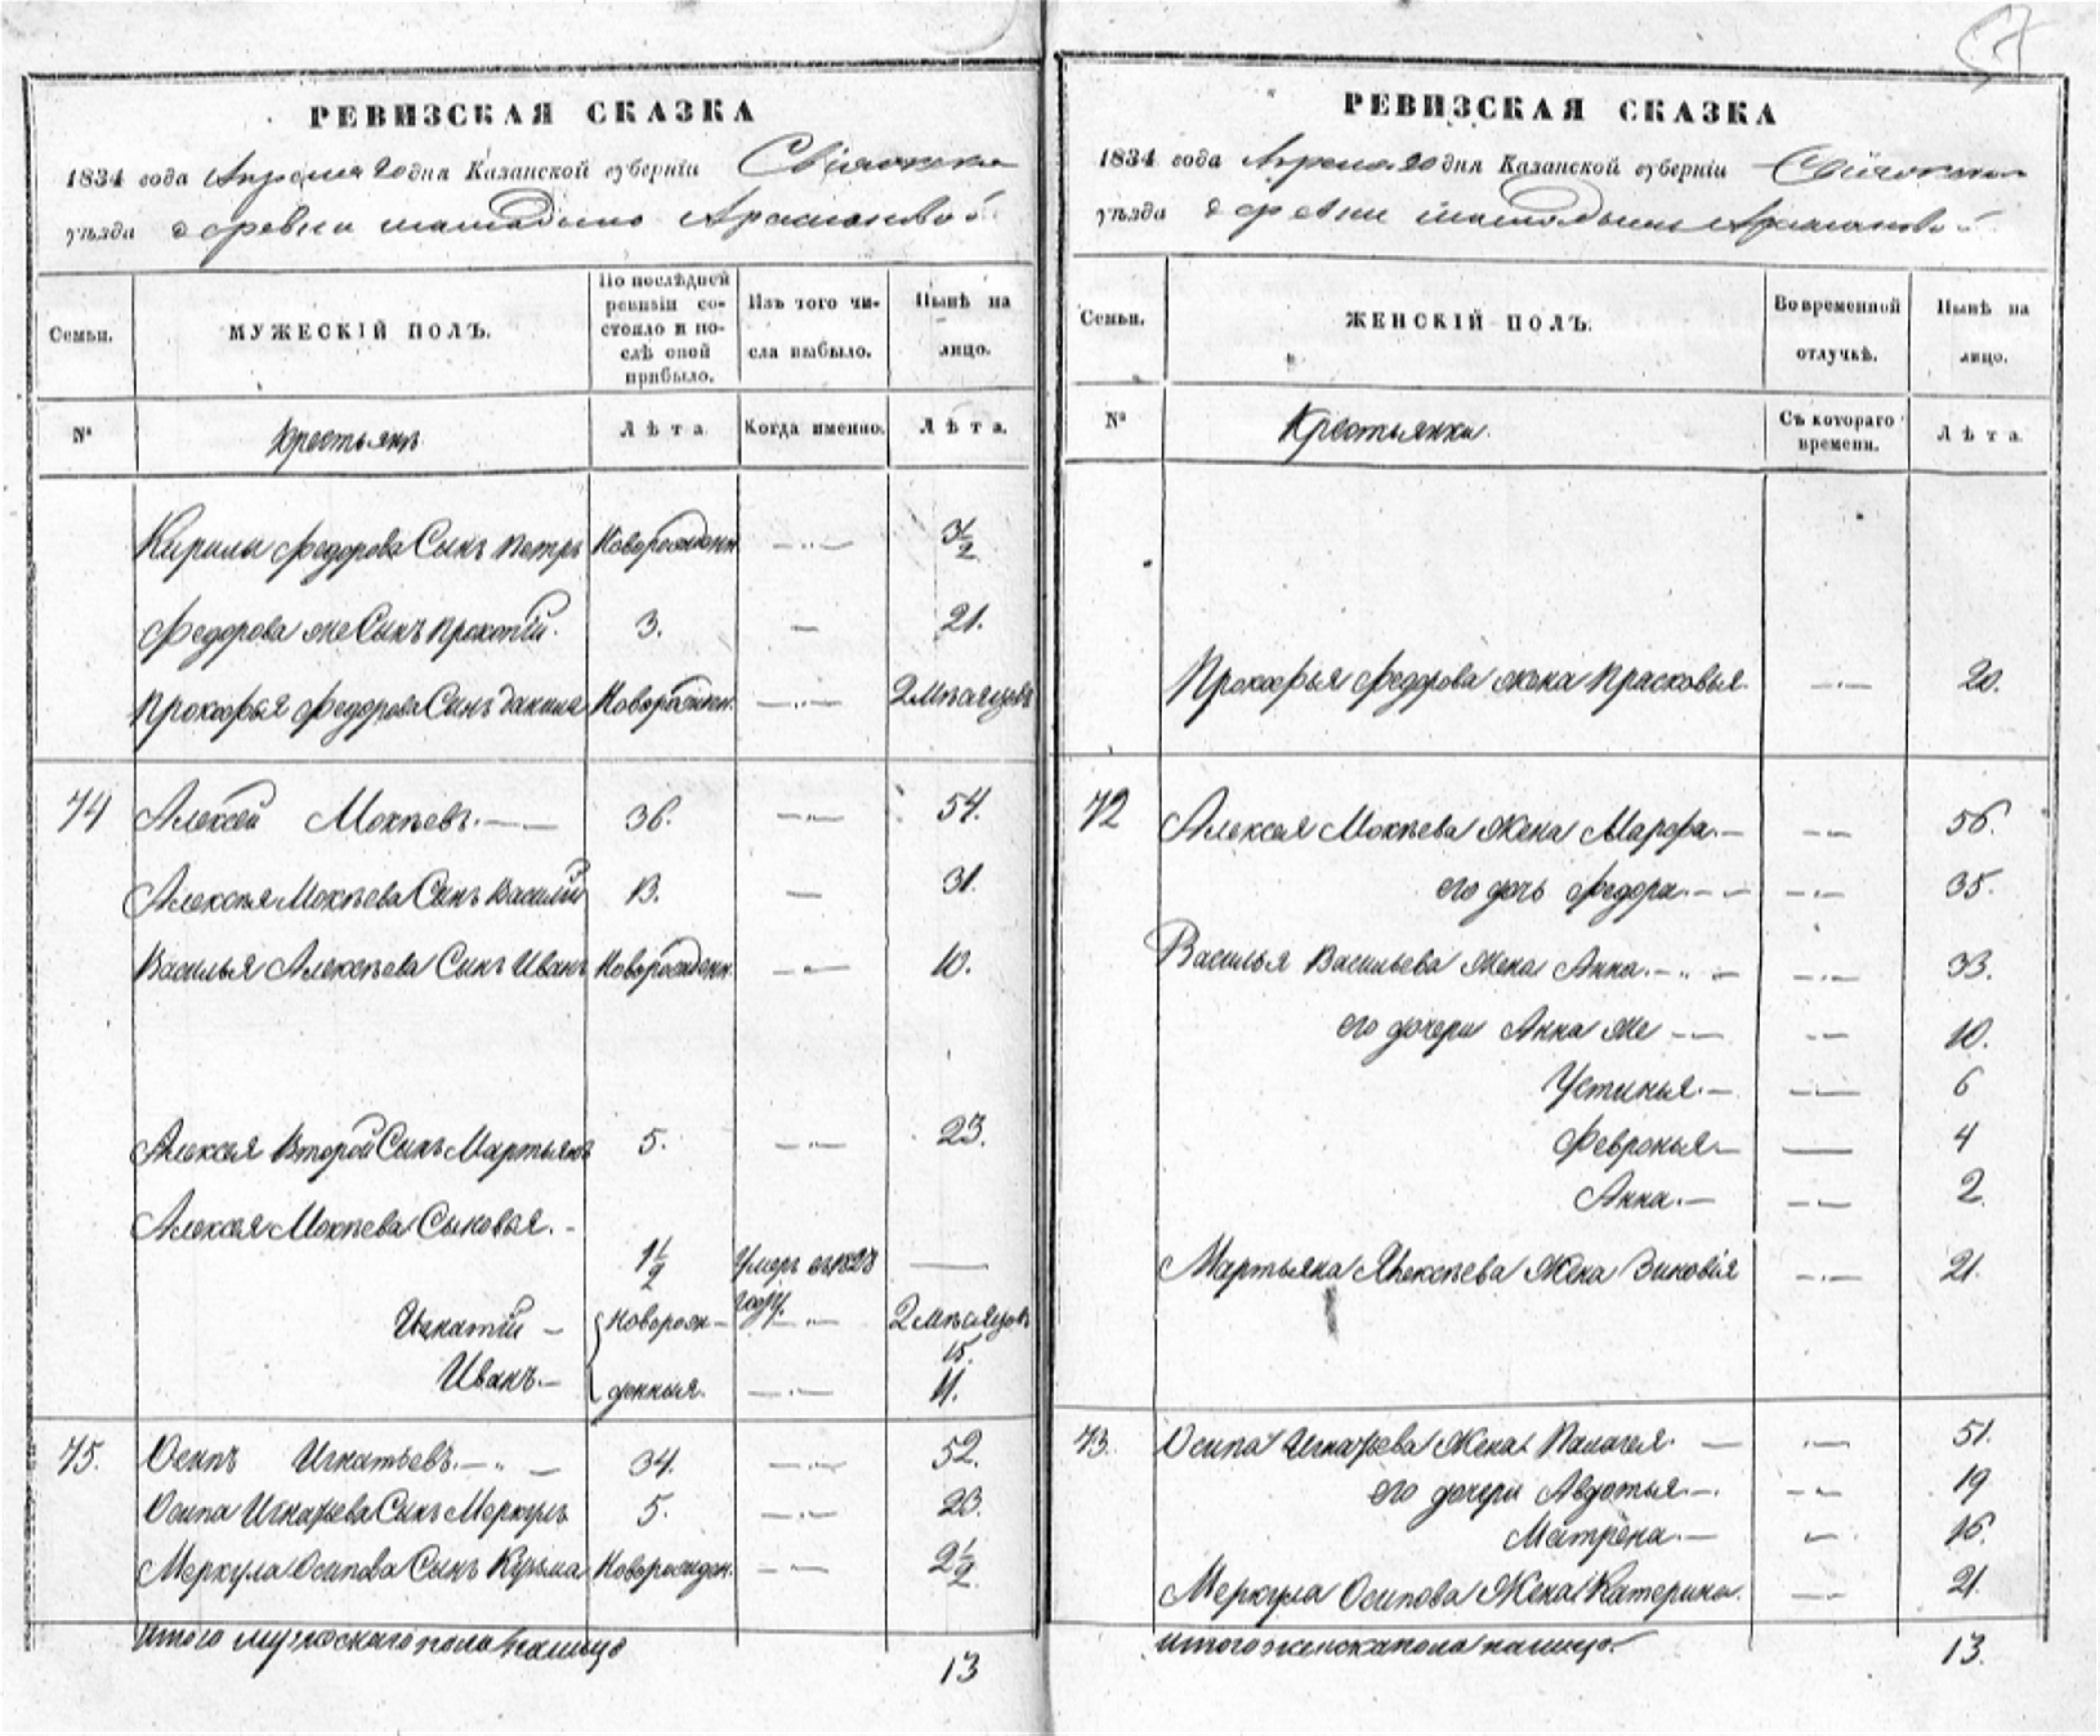 РЕВИЗСКАЯ СКАЗКА
1834 года Апреля 20 дня Казанской губернiи Свiяжска
уѣзда деревни Арасланбой
Семьи.
МУЖЕСКIЙ ПОЛЪ.
По послѣдней ревизiи со-
стояло и по-
слѣ оной
прибыло.
Изъ того чи-
сла выбыло.
Нынѣ на
лицо.
№
Крестьянъ
Лѣта
Когда именно.
Лѣта.
Кирилы Федорова Сынъ Петръ Новорожденн
Федорова же Сынъ Прокопiй. 3. — 21.
Прокофья Федорова Сынъ Данила Новорожден. 2 мѣсяцовъ
74 Алексей Мокѣевъ. 36. 54.
Алексея Мокѣева Сынъ Василiй 13. — 31.
Василья Алексѣева Сынъ Иванъ Новорожденн 10.
Алексея Второй Сынъ Мартьянъ 5. 23.
Алексея Мокѣева Сыновья.
1 1/2 Умеръ въ 1828 —
году.
Игнатiй — Новорож- 2 мѣсяцовъ
15.
Иванъ. — денныя. 11.
75. Осипъ Игнатьевъ. 34. 52.
Осипа Игнатьева Сынъ Меркулъ 5. 23.
Меркула Осипова Сынъ Кузьма Новорожден. 2 1/2
Итого мужескаго пола налицо
13
РЕВИЗСКАЯ СКАЗКА
1834 года Апреля 20 дня Казанской губернiи Свiяжска
уѣзда деревни
Семьи.
ЖЕНСКIЙ ПОЛЪ.
Во временной
отлучкѣ.
Нынѣ на
лицо.
№
Крестьянки.
Съ котораго
времени.
Лѣта
Прокофья Федорова жена Прасковья. 20.
72 Алексея Мокѣева Жена Марфа. — 56.
его дочь Федора. 35.
Василья Васильева Жена Анна. 33.
его дочери Анна же 10.
Устинья. — 6
Февронья — 4
Анна. — 2.
Мартьяна Алексѣева Жена Зиновiя 21.
73. Осипа Игнатьева Жена Палагея. — 51.
его дочери Авдотья. — 19
Матрена. — 16.
Меркула Осипова Жена Катерина. 21.
Итого женска пола налицо.
13.